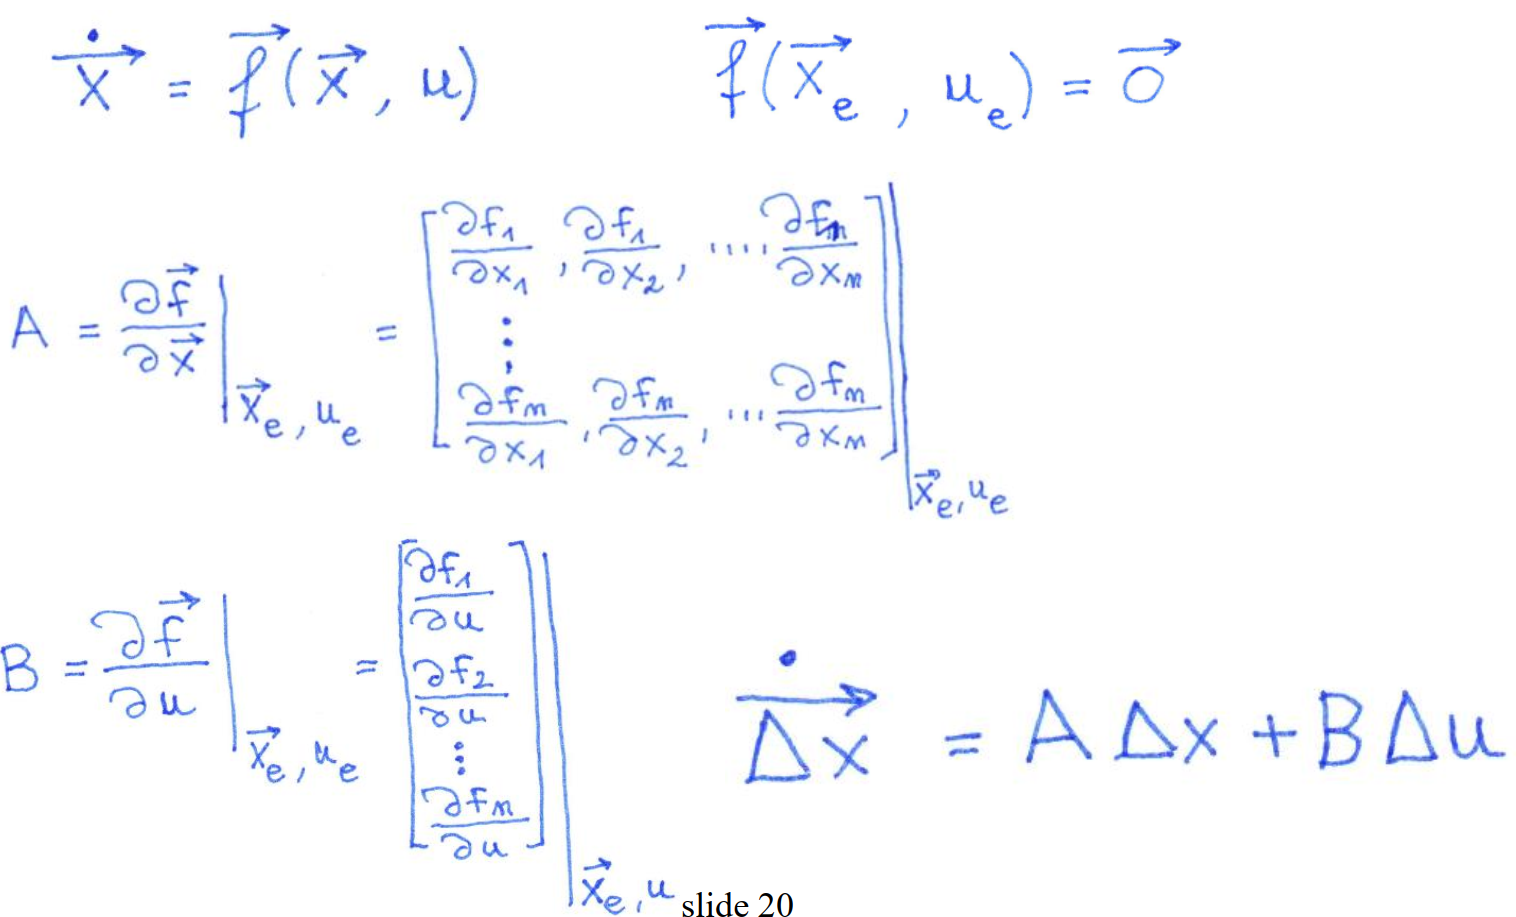 $\dot{\vec{x}} = \vec{f}(\vec{x}, u) \qquad \vec{f}(\vec{x}_e, u_e) = \vec{0}$
$A = \left. \frac{\partial \vec{f}}{\partial \vec{x}} \right|_{\vec{x}_e, u_e} = \left. \begin{bmatrix} \frac{\partial f_1}{\partial x_1}, \frac{\partial f_1}{\partial x_2}, \cdots \frac{\partial f_n}{\partial x_n} \\ \vdots \\ \frac{\partial f_n}{\partial x_1}, \frac{\partial f_n}{\partial x_2}, \cdots \frac{\partial f_n}{\partial x_n} \end{bmatrix} \right|_{\vec{x}_e, u_e}$
$B = \left. \frac{\partial \vec{f}}{\partial u} \right|_{\vec{x}_e, u_e} = \left. \begin{bmatrix} \frac{\partial f_1}{\partial u} \\ \frac{\partial f_2}{\partial u} \\ \vdots \\ \frac{\partial f_n}{\partial u} \end{bmatrix} \right|_{\vec{x}_e, u} \qquad \dot{\overrightarrow{\Delta x}} = A \Delta x + B \Delta u$
slide 20